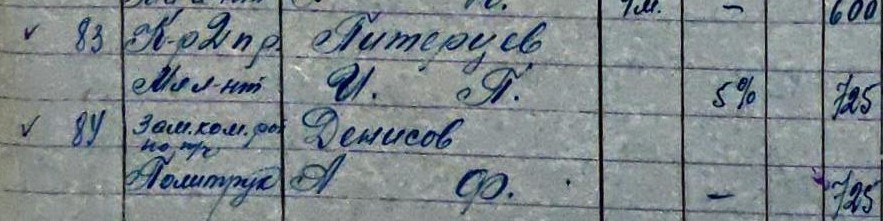 м. — 600
✓ 83 К-р 2 пр. Питерцев
Мл л-нт И. П. 5% 725
✓ 84 Зам. ком. Денисов
Политрук А Ф. — 725